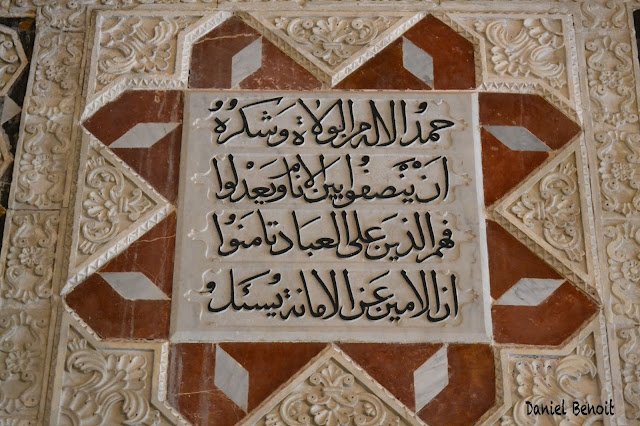 حمدُ الاله من الولاة وشكرُهُ
ان ينصفوا بين الانام ويعدلوا
فهم الذين على العباد تامنوا
ان الامين عن الامانة يسئل
Daniel Benoit